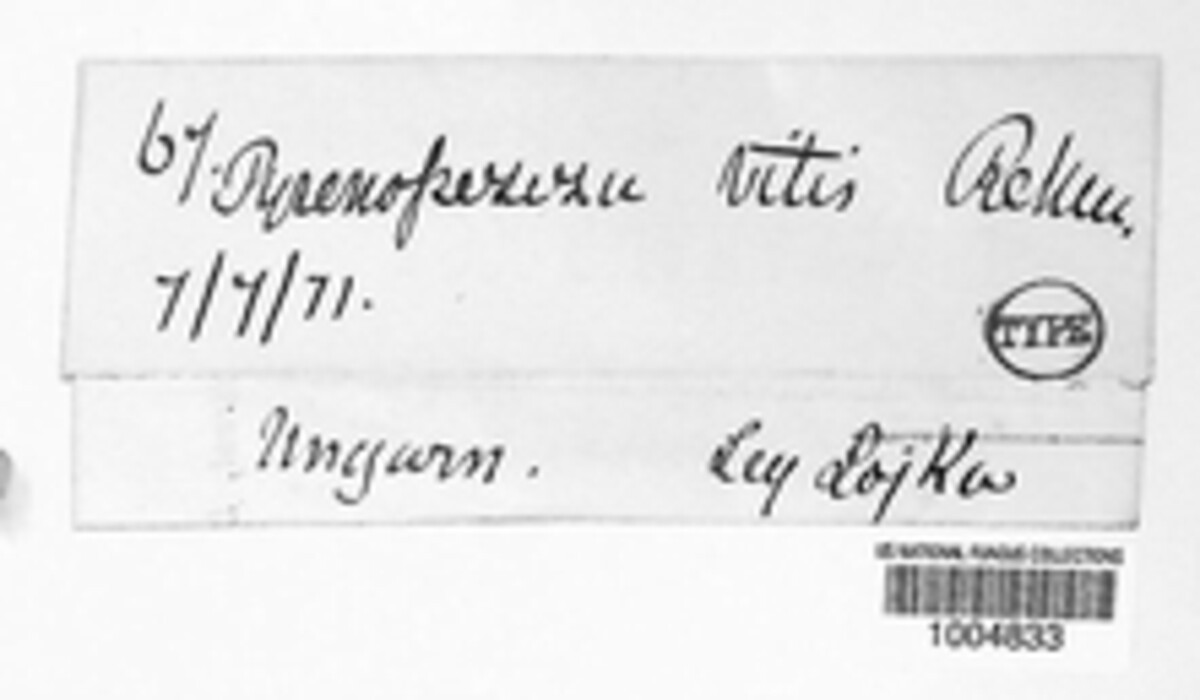 67. Pyrenopeziza Vitis Rehm.
7/7/71.
TYPE
Ungarn. Leg Lojka
US NATIONAL FUNGUS COLLECTIONS
1004833